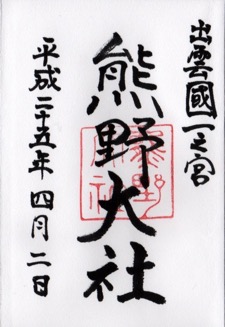 出雲國一之宮
熊野大社
平成二十五年四月二日
熊野
大社